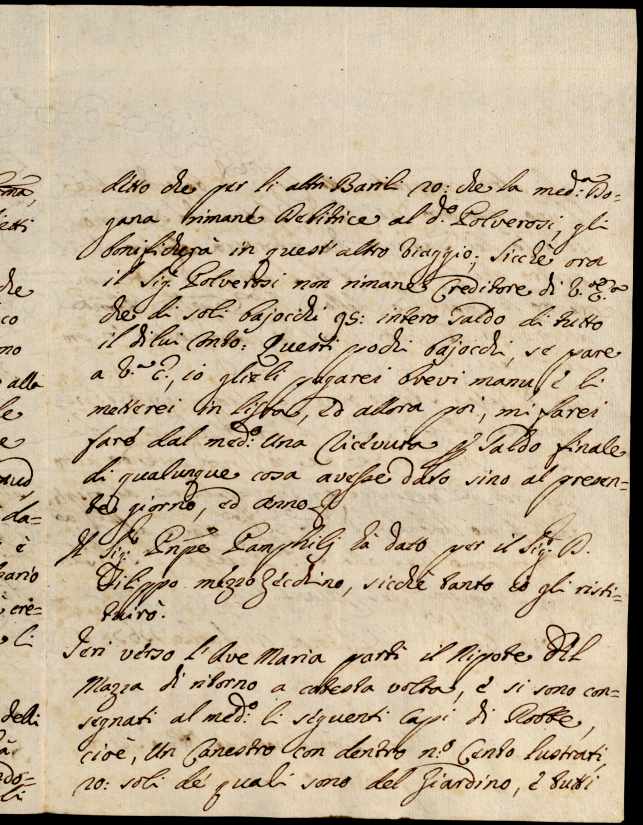 ditto che per li altri Barili 20: che la med:a Do=
gana rimane Debitrice al d.o Polverosi, gli
bonificherà in quest'altro viaggio; sicchè ora
il Sig.r Polverosi non rimane Creditore di V.ra E.za
che di soli bajocchi 95: intero Saldo di tutto
il di lui Conto: Questi pochi bajocchi, se pare
a V.ra E., io glieli pagarei brevi manu, è li
metterei in lista, ed allora poi, mi farei
fare dal med:o Una ricevuta p Saldo finale
di qualunque cosa avesse dato sino al presen=
te giorno, ed anno
Il Sig.r Pnpe Pamphilj hà dato per il Sig.r D.
Filippo mezzo Zecchino, sicchè tanto io gli risti=
tuirò.
Jeri verso l'Ave Maria partì il Nipote del
Mazza di ritorno a cotesta volta, è si sono con=
segnati al med:o li seguenti Capi di Robbe,
cioè, Un Canestro con dentro n.o Cento lustrati,
20: soli de quali sono del Giardino, è tutti
ma,
etti
che
co
no
alla
le
e
da=
è
bario
cre=
li
delli